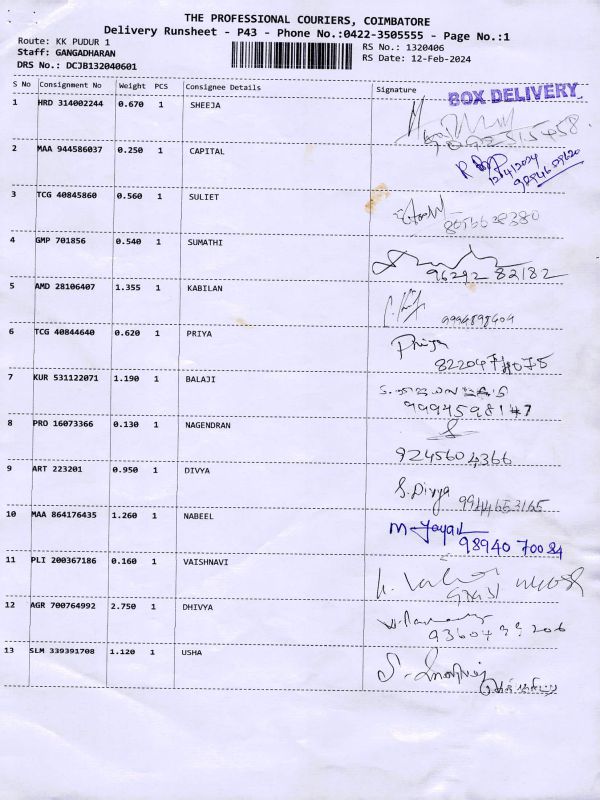 THE PROFESSIONAL COURIERS, COIMBATORE
Delivery Runsheet - P43 - Phone No.:0422-3505555 - Page No.:1
Route: KK PUDUR 1 RS No.: 1320406
Staff: GANGADHARAN RS Date: 12-Feb-2024
DRS No.: DCJB132040601
S No Consignment No Weight PCS Consignee Details Signature
BOX DELIVERY
1 HRD 314002244 0.670 1 SHEEJA
2 MAA 944586037 0.250 1 CAPITAL
3 TCG 40845860 0.560 1 SULIET
4 GMP 701856 0.540 1 SUMATHI
96292 82182
5 AMD 28106407 1.355 1 KABILAN
6 TCG 40844640 0.620 1 PRIYA
Priya
7 KUR 531122071 1.190 1 BALAJI
9994598147
8 PRO 16073366 0.130 1 NAGENDRAN
9245604366
9 ART 223201 0.950 1 DIVYA
S. Divya 9944653165
10 MAA 864176435 1.260 1 NABEEL
98940 70084
11 PLI 200367186 0.160 1 VAISHNAVI
12 AGR 700764992 2.750 1 DHIVYA
13 SLM 339391708 1.120 1 USHA